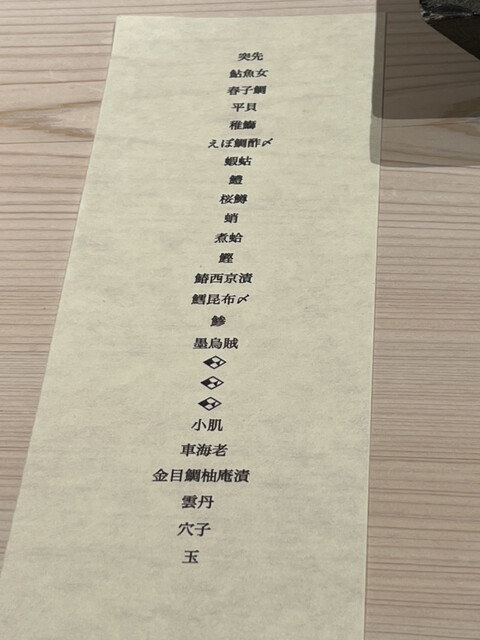 突先
鮎魚女
春子鯛
平貝
稚鰤
えぼ鯛酢〆
蝦蛄
鱧
桜鱒
蛸
煮蛤
鰹
鰆西京漬
鱈昆布〆
鯵
墨烏賊
小肌
車海老
金目鯛柚庵漬
雲丹
穴子
玉